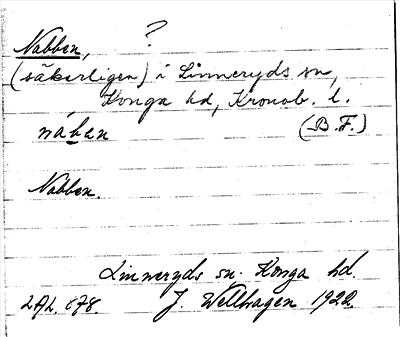 Nabben, ?
(säkerligen) i Linneryds sn,
Konga hd, Kronob. l.
náben (B.F.)
Nabben.
Linneryds sn. Konga hd.
LAL. 678. J. Wellhagen 1922.